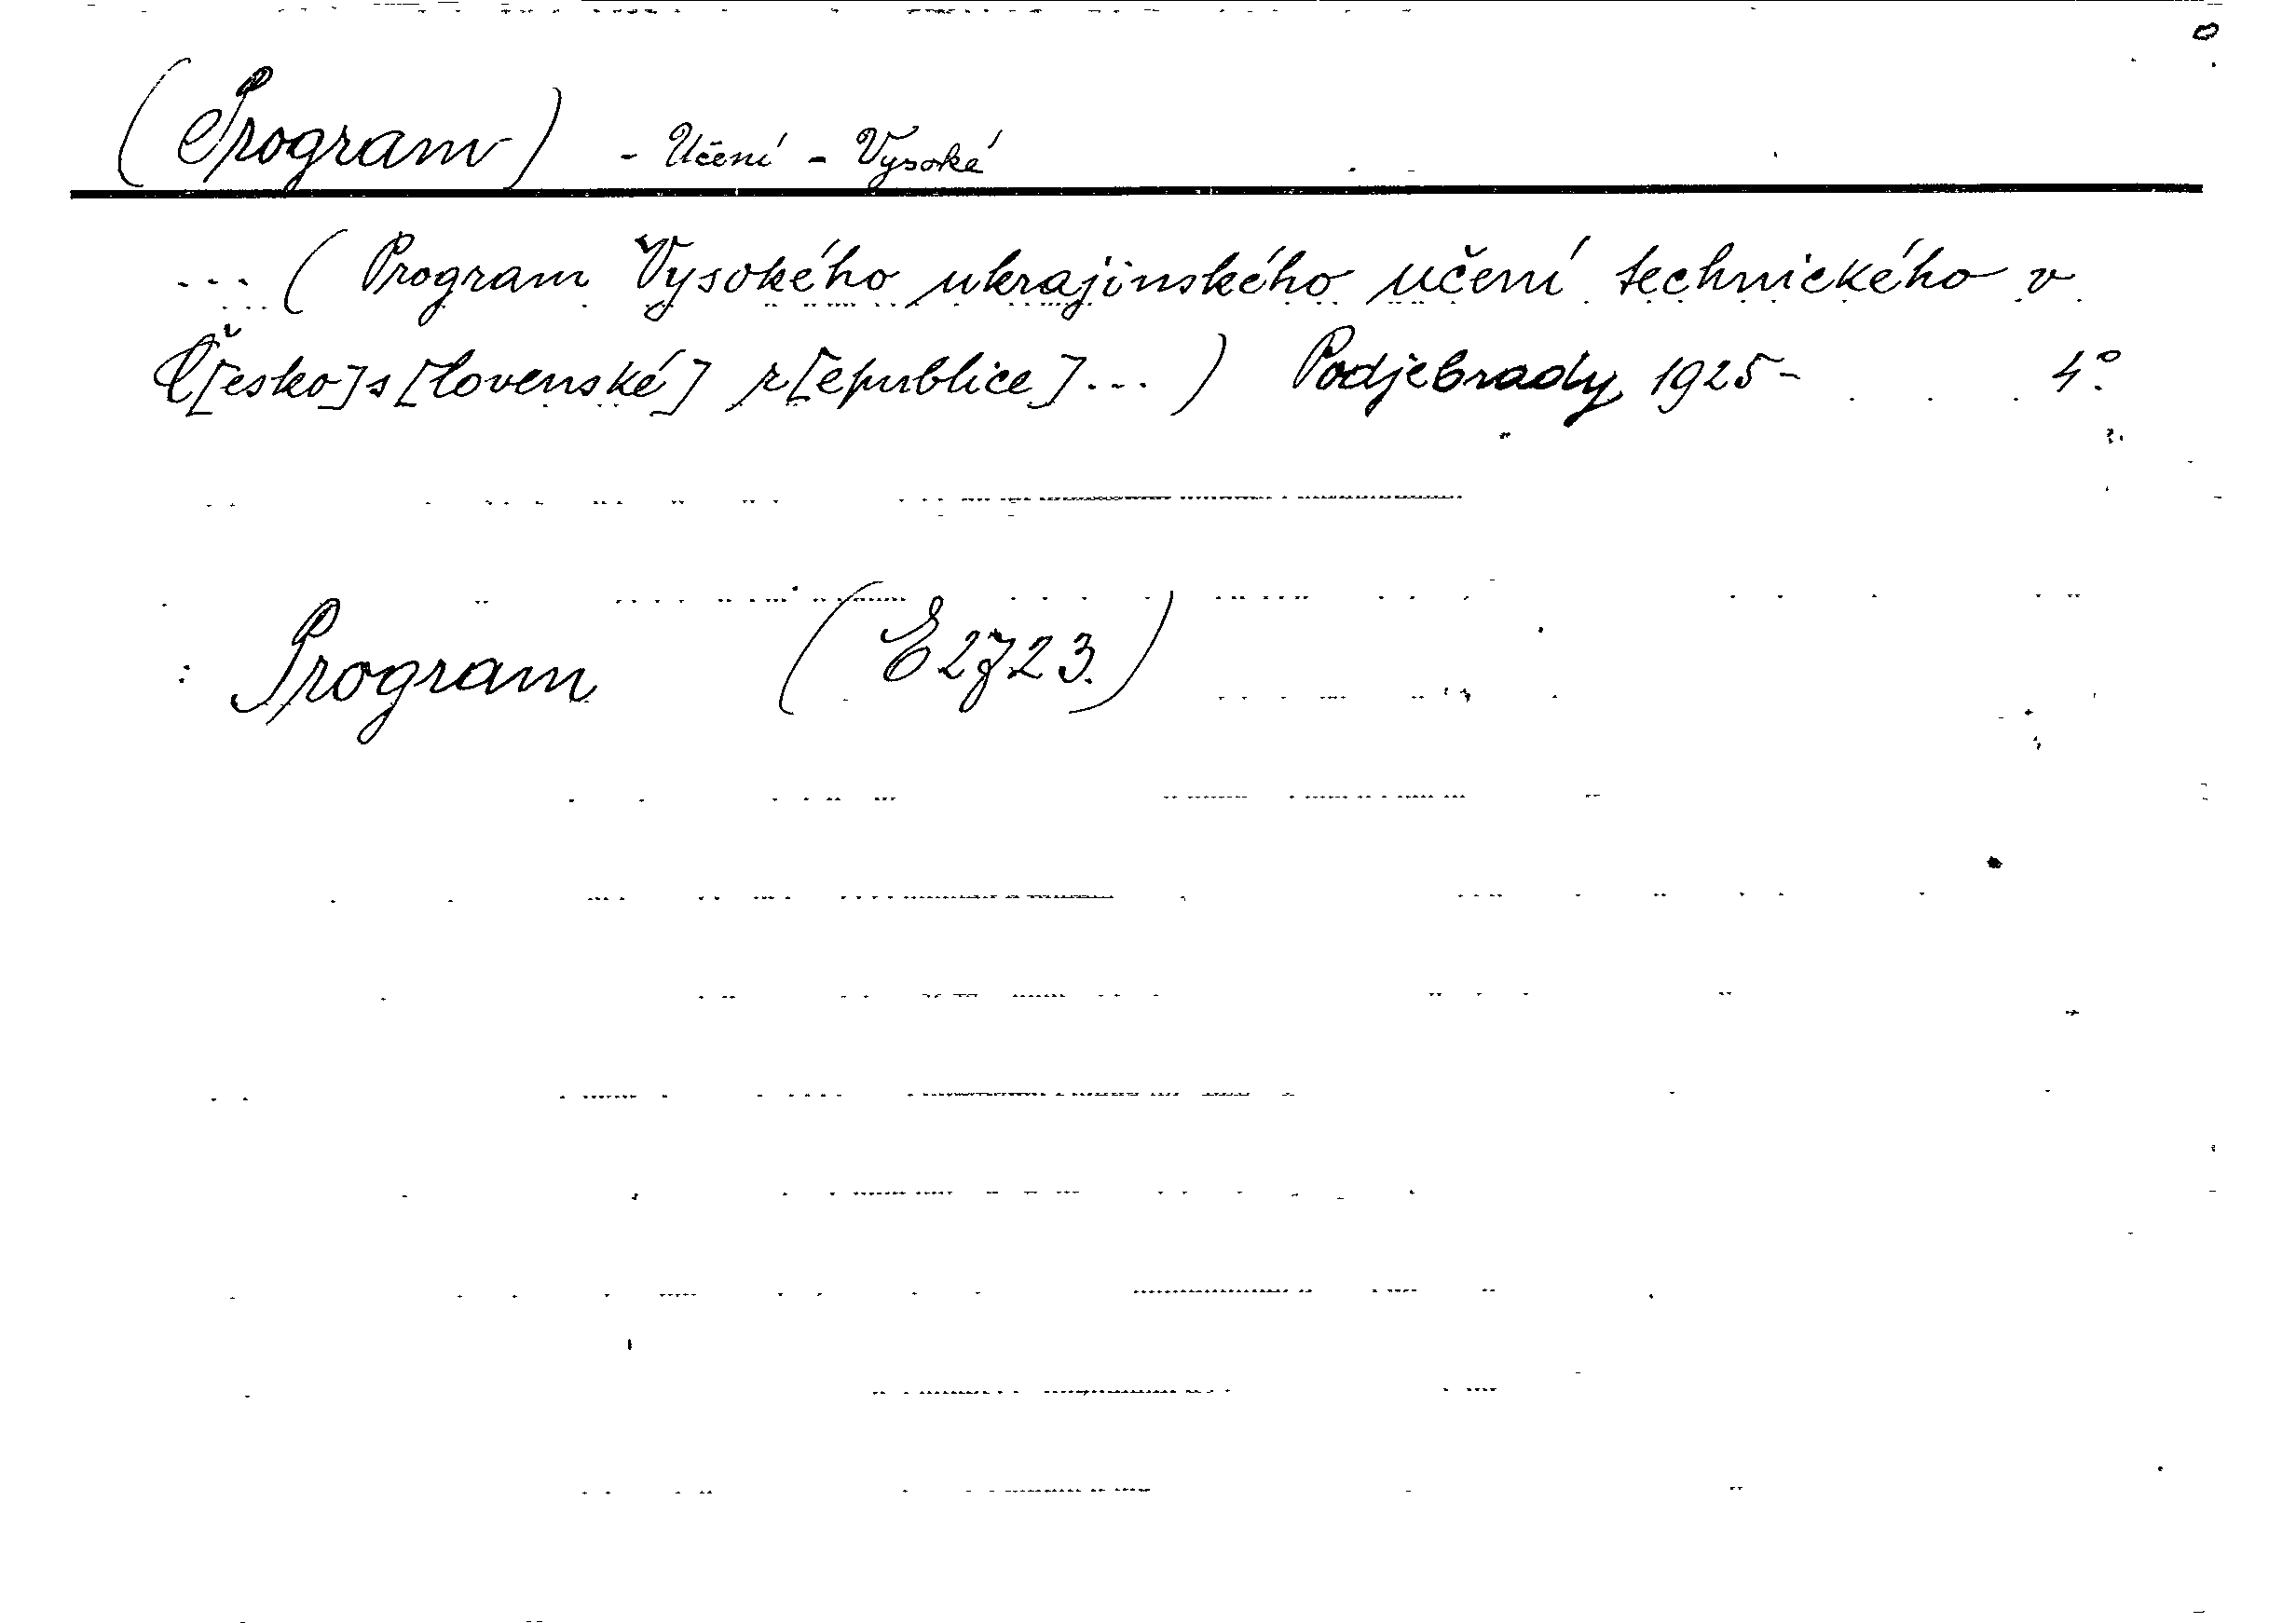 (Program) - Učení - Vysoké
... ( Program Vysokého ukrajinského učení technického v
Č[esko]s[lovenské] r[epublice]... ) Podjebrady 1925- 4°
Program (E2723.)